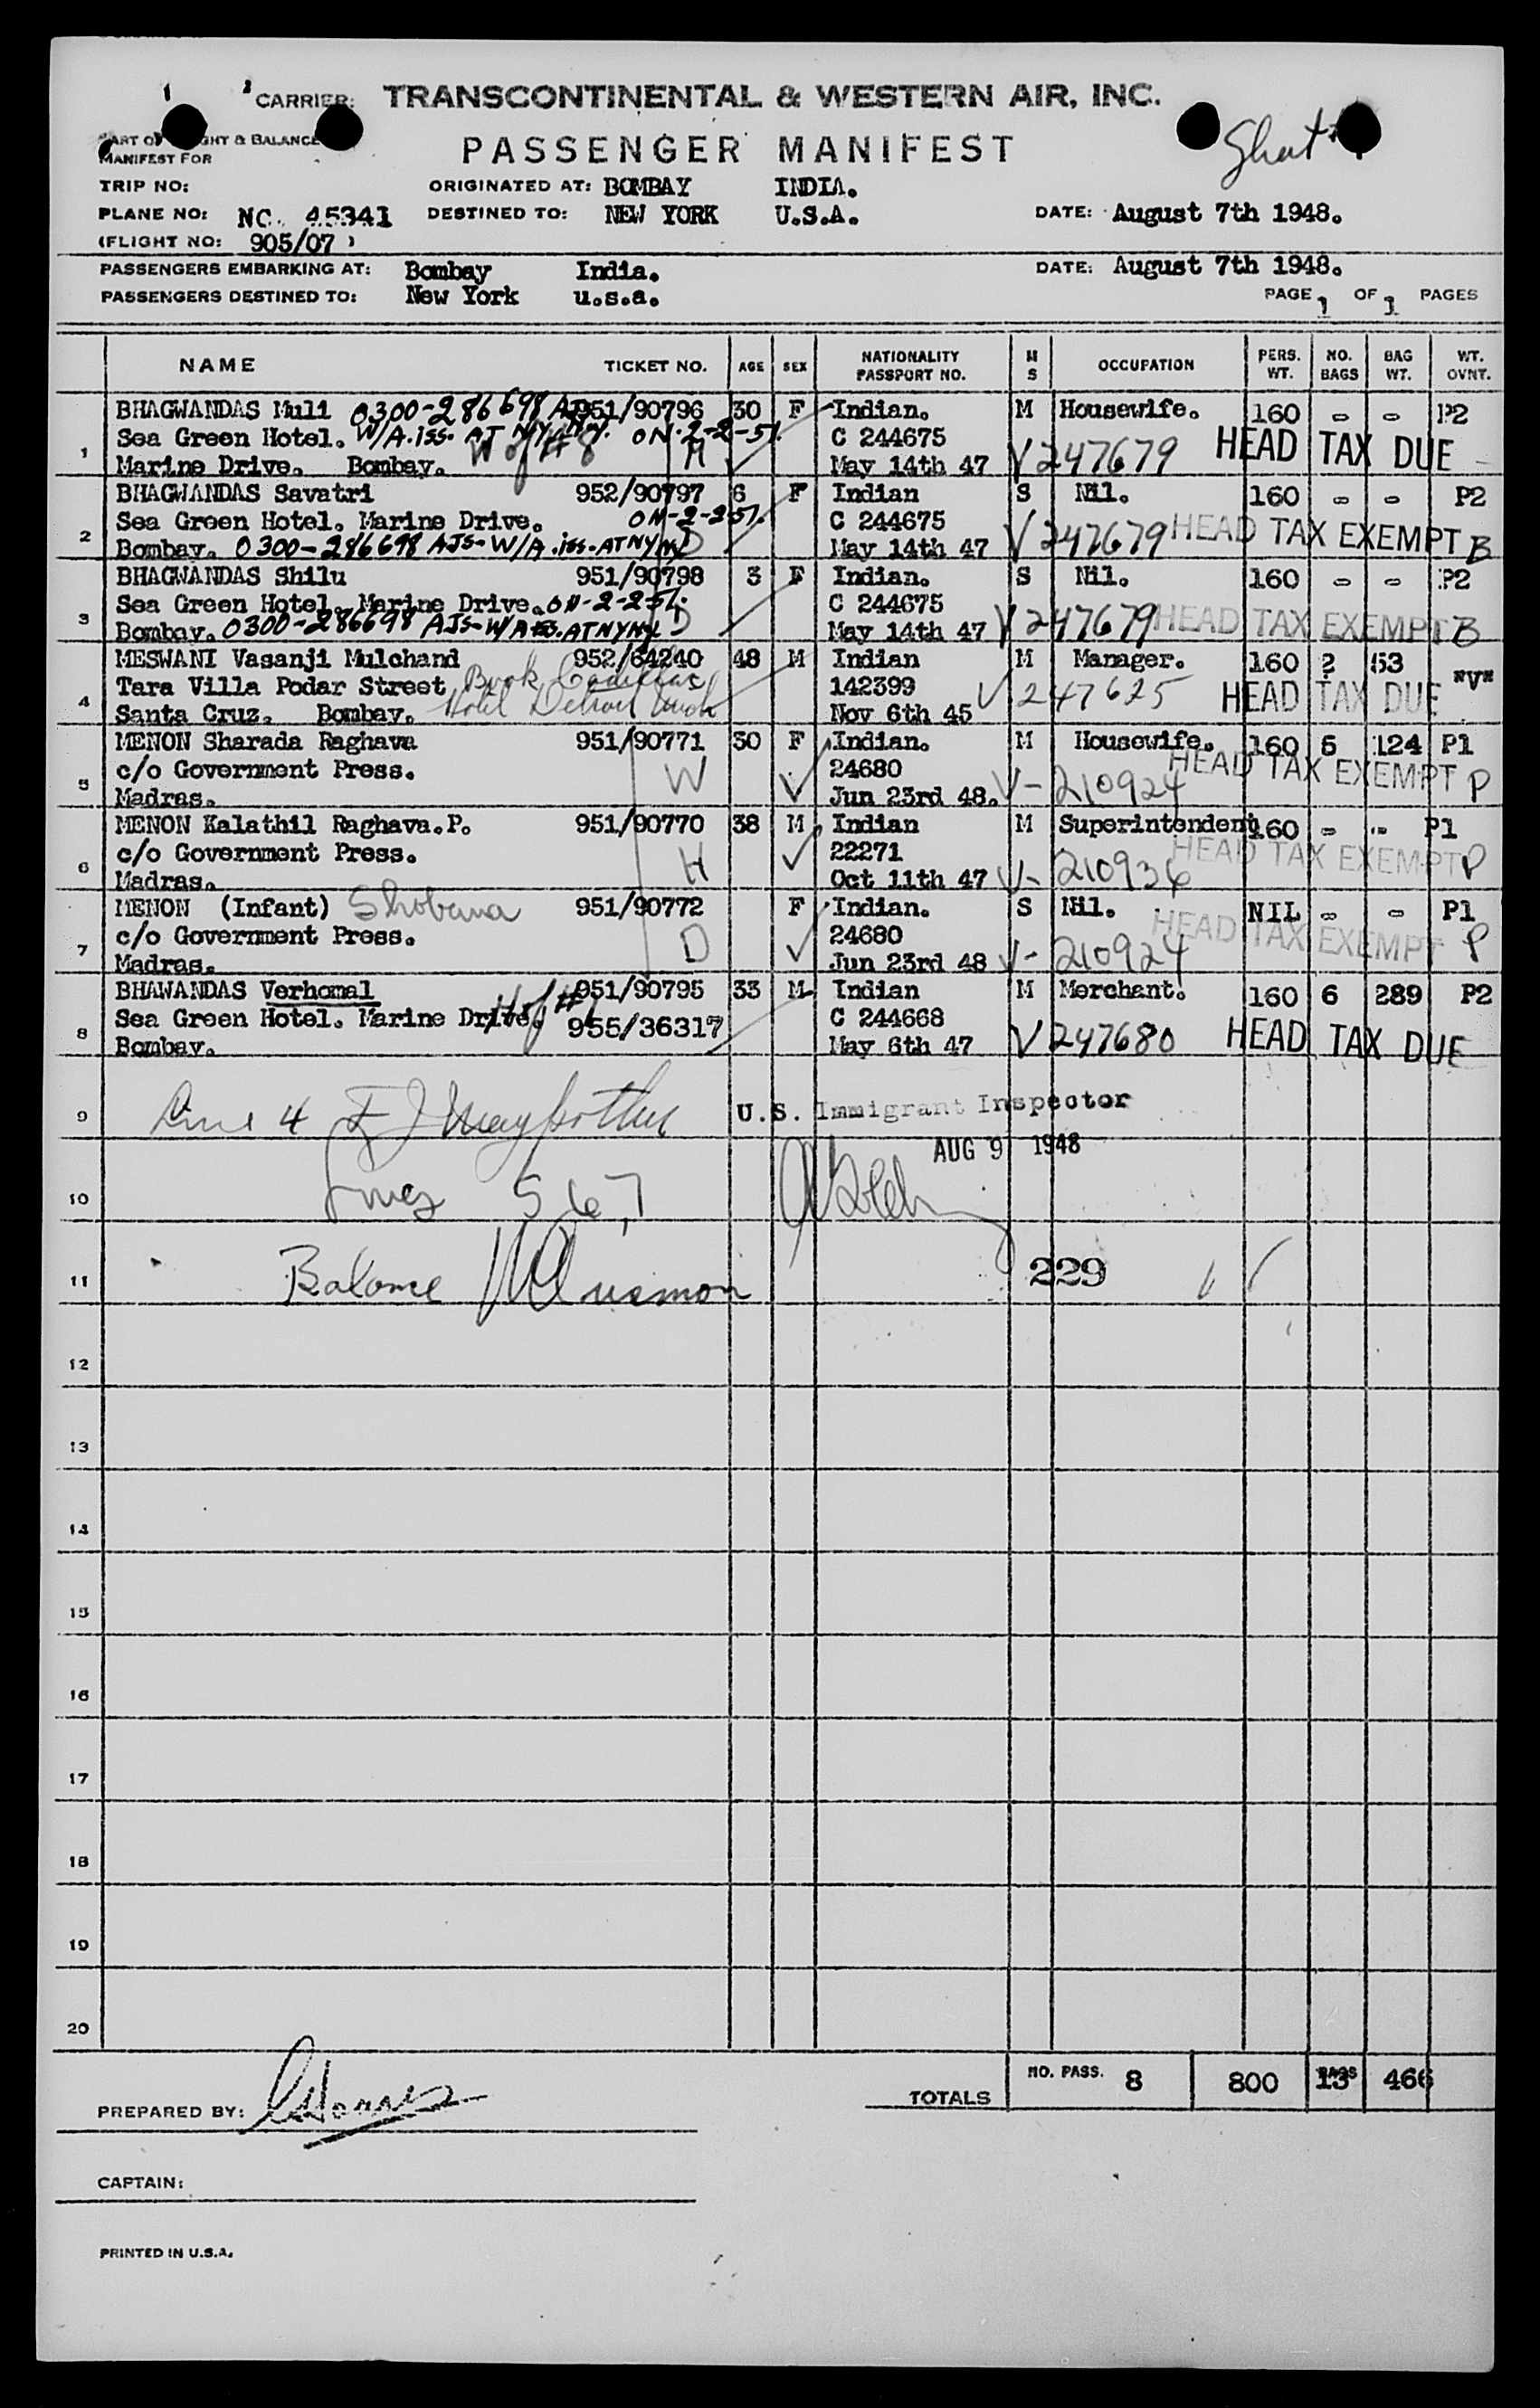 CARRIER: TRANSCONTINENTAL & WESTERN AIR, INC.
PASSENGER MANIFEST
MANIFEST FOR
TRIP NO: ORIGINATED AT: BOMBAY INDIA.
PLANE NO: NC. 45341 DESTINED TO: NEW YORK U.S.A. DATE: August 7th 1948.
(FLIGHT NO: 905/07 )
PASSENGERS EMBARKING AT: Bombay India. DATE: August 7th 1948.
PASSENGERS DESTINED TO: New York u.s.a. PAGE 1 OF 1 PAGES
NAME TICKET NO. AGE SEX NATIONALITY PASSPORT NO. M S OCCUPATION PERS. WT. NO. BAGS BAG WT. WT. OVNT.
BHAGWANDAS Muli 0300-286698 AJS 951/90796 30 F Indian. M Housewife. 160 - - P2
Sea Green Hotel. W/A.iss. AT NY, NY. ON 2-2-51. C 244675
1 Marine Drive. Bombay. W of #8 M May 14th 47 V247679 HEAD TAX DUE
BHAGWANDAS Savatri 952/90797 6 F Indian S Nil. 160 - - P2
Sea Green Hotel. Marine Drive. ON-2-2-51. C 244675
2 Bombay. 0300-286698 AJS-W/A.iss.ATNYNY D May 14th 47 V247679 HEAD TAX EXEMPT B
BHAGWANDAS Shilu 951/90798 3 F Indian. S Nil. 160 - - P2
Sea Green Hotel. Marine Drive. ON-2-2-51. C 244675
3 Bombay. 0300-286698 AJS-W/A iss.ATNYNY D May 14th 47 V247679 HEAD TAX EXEMPT B
MESWANI Vasanji Mulchand 952/64240 48 M Indian M Manager. 160 2 53
Tara Villa Podar Street Book Cadillac 142399 "V"
4 Santa Cruz. Bombay. Hotel Detroit Mich Nov 6th 45 V247625 HEAD TAX DUE
MENON Sharada Raghava 951/90771 30 F Indian. M Housewife. 160 5 124 P1
c/o Government Press. W 24680 HEAD TAX EXEMPT P
5 Madras. Jun 23rd 48. V-210924
MENON Kalathil Raghava.P. 951/90770 38 M Indian M Superintendent 160 - - P1
c/o Government Press. H 22271 HEAD TAX EXEMPT P
6 Madras. Oct 11th 47 V-210936
MENON (Infant) Shobana 951/90772 F Indian. S Nil. NIL - - P1
c/o Government Press. D 24680 HEAD TAX EXEMPT P
7 Madras. Jun 23rd 48 V-210924
BHAWANDAS Verhomal 951/90795 33 M Indian M Merchant. 160 6 289 P2
Sea Green Hotel. Marine Drive. H of #1 955/36317 C 244668
8 Bombay. May 6th 47 V247680 HEAD TAX DUE
9 Line 4 U.S. Immigrant Inspector
AUG 9 1948
10 Lines 5 6, 7
11 Balance 229
12
13
14
15
16
17
18
19
20
TOTALS NO. PASS. 8 800 BAGS 13 466
PREPARED BY:
CAPTAIN:
PRINTED IN U.S.A.